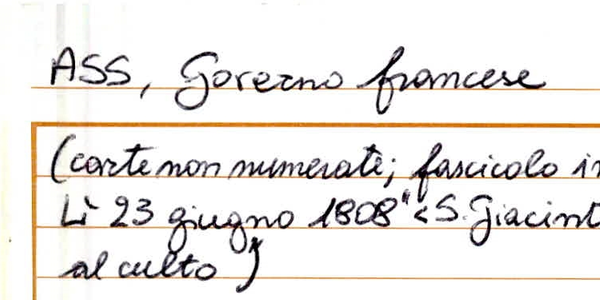 ASS, Governo francese
(carte non numerate; fascicolo in
Lì 23 giugno 1808" < S. Giacint
al culto)